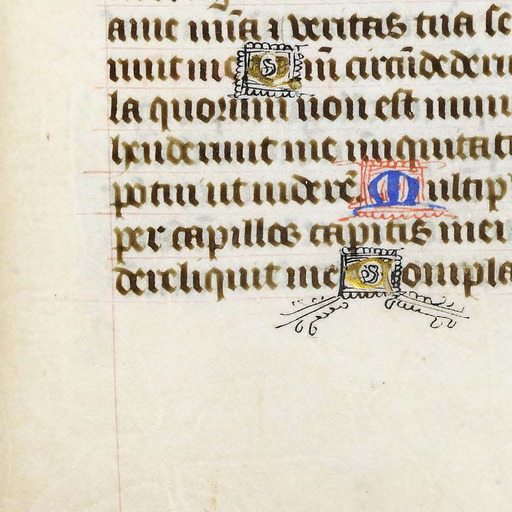 a me mīa ⁊ veritas tua se
runt me Qm̄ circūdederu
la quorum non est num
henderunt me iniquitat
potui ut viderē Multip
per capillos capitis mei
dereliquit me Compla